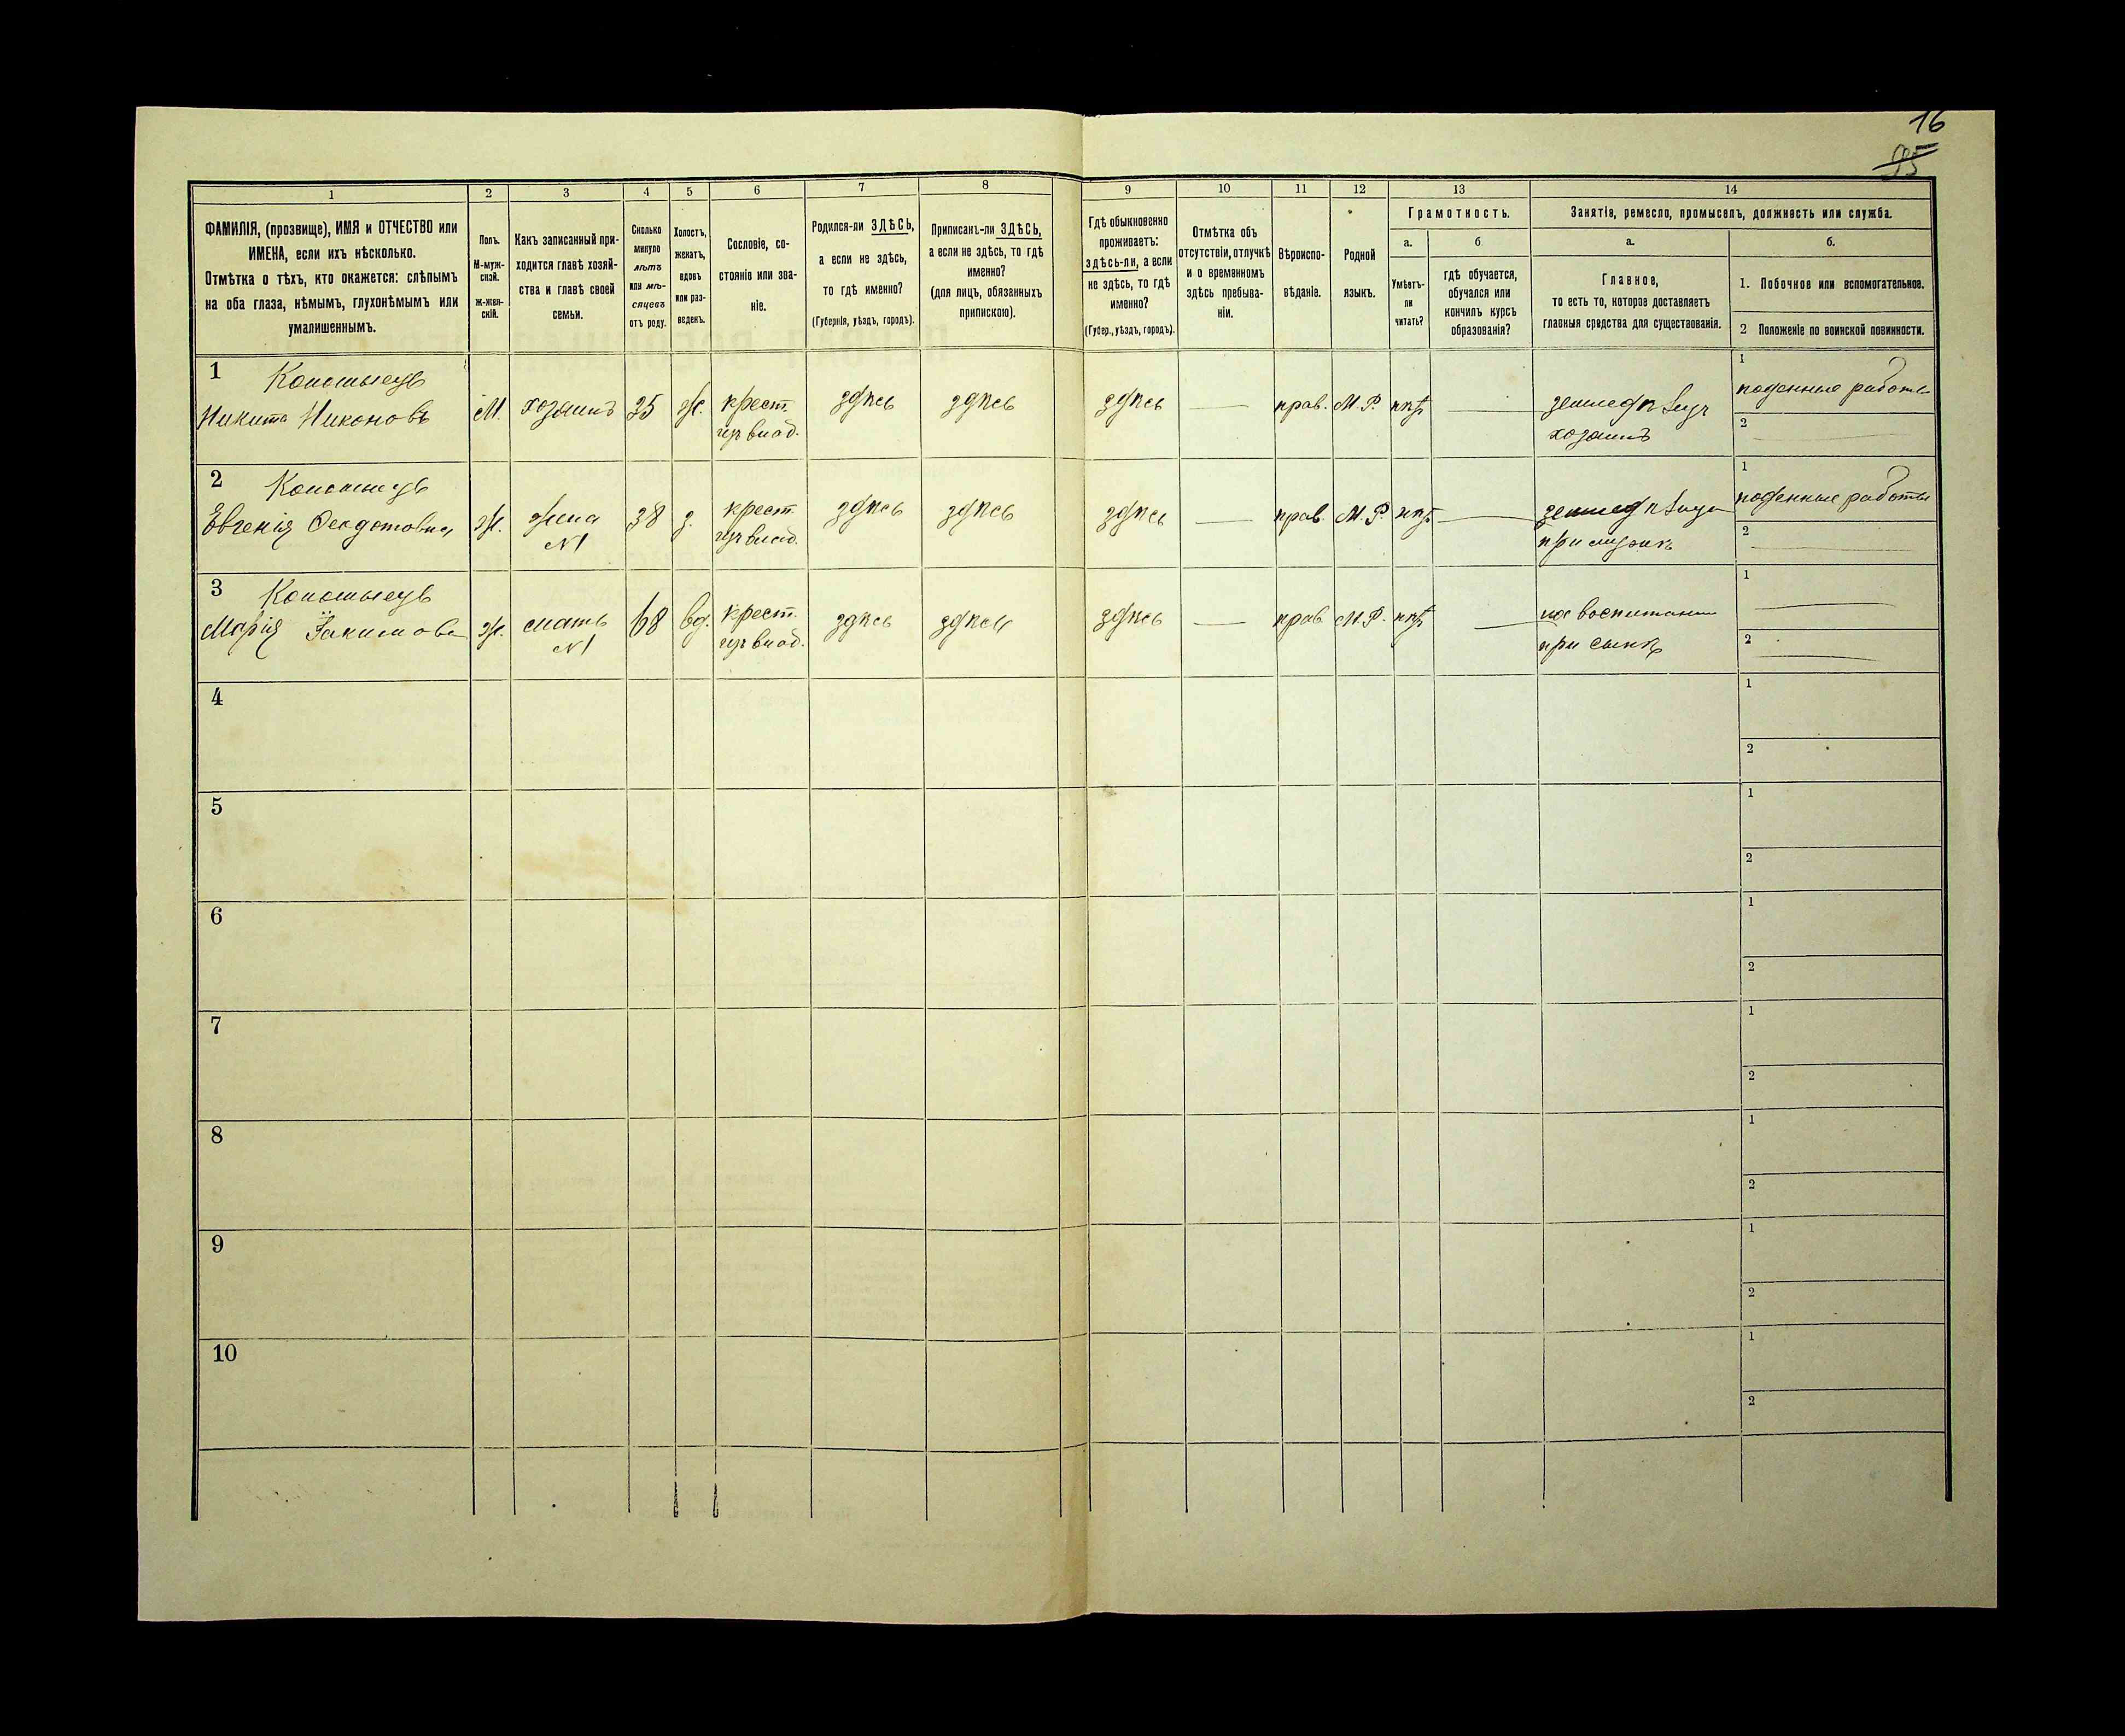 16
95
1
2
3
4
5
6
7
8
9
10
11
12
13
14
ФАМИЛІЯ, (прозвище), ИМЯ и ОТЧЕСТВО или
ИМЕНА, если ихъ нѣсколько.
Отмѣтка о тѣхъ, кто окажется: слѣпымъ
на оба глаза, нѣмымъ, глухонѣмымъ или
умалишеннымъ.
Полъ.
М-муж-
ской.
Ж-жен-
скій.
Какъ записанный при-
ходится главѣ хозяй-
ства и главѣ своей
семьи.
Сколько
минуло
лѣтъ
или мѣ-
сяцевъ
отъ роду.
Холостъ,
женатъ,
вдовъ
или раз-
веденъ.
Сословіе, со-
стояніе или зва-
ніе.
Родился-ли ЗДѢСЬ,
а если не здѣсь,
то гдѣ именно?
(Губернія, уѣздъ, городъ).
Приписанъ-ли ЗДѢСЬ,
а если не здѣсь, то гдѣ
именно?
(для лицъ, обязанныхъ
припискою).
Гдѣ обыкновенно
проживаетъ:
здѣсь-ли, а если
не здѣсь, то гдѣ
именно?
(Губер., уѣздъ, городъ).
Отмѣтка объ
отсутствіи, отлучкѣ
и о временномъ
здѣсь пребыва-
ніи.
Вѣроиспо-
вѣданіе.
Родной
языкъ.
Грамотность.
а.
Умѣетъ-
ли
читать?
б
гдѣ обучается,
обучался или
кончилъ курсъ
образованія?
Занятіе, ремесло, промыселъ, должность или служба.
а.
Главное,
то есть то, которое доставляетъ
главныя средства для существованія.
б.
1. Побочное или вспомогательное.
2 Положеніе по воинской повинности.
1
Никита Никоновъ
М. хозяинъ 35 ж. крест. здѣсь здѣсь здѣсь — прав. М. Р. нѣтъ —
хозяинъ
1 поденные работы
2 —
2
Евгенія Ѳеодотовна
ж. жена
№1
38 з. крест. здѣсь здѣсь здѣсь — прав. М. Р. нѣтъ —
при мужѣ
1 поденные работы
2 —
3
Марія Якимова
ж. мать
№1
68 вд. крест. здѣсь здѣсь здѣсь — прав. М. Р. нѣтъ —
на воспитаніи
при сынѣ
1 —
2 —
4
1
2
5
1
2
6
1
2
7
1
2
8
1
2
9
1
2
10
1
2